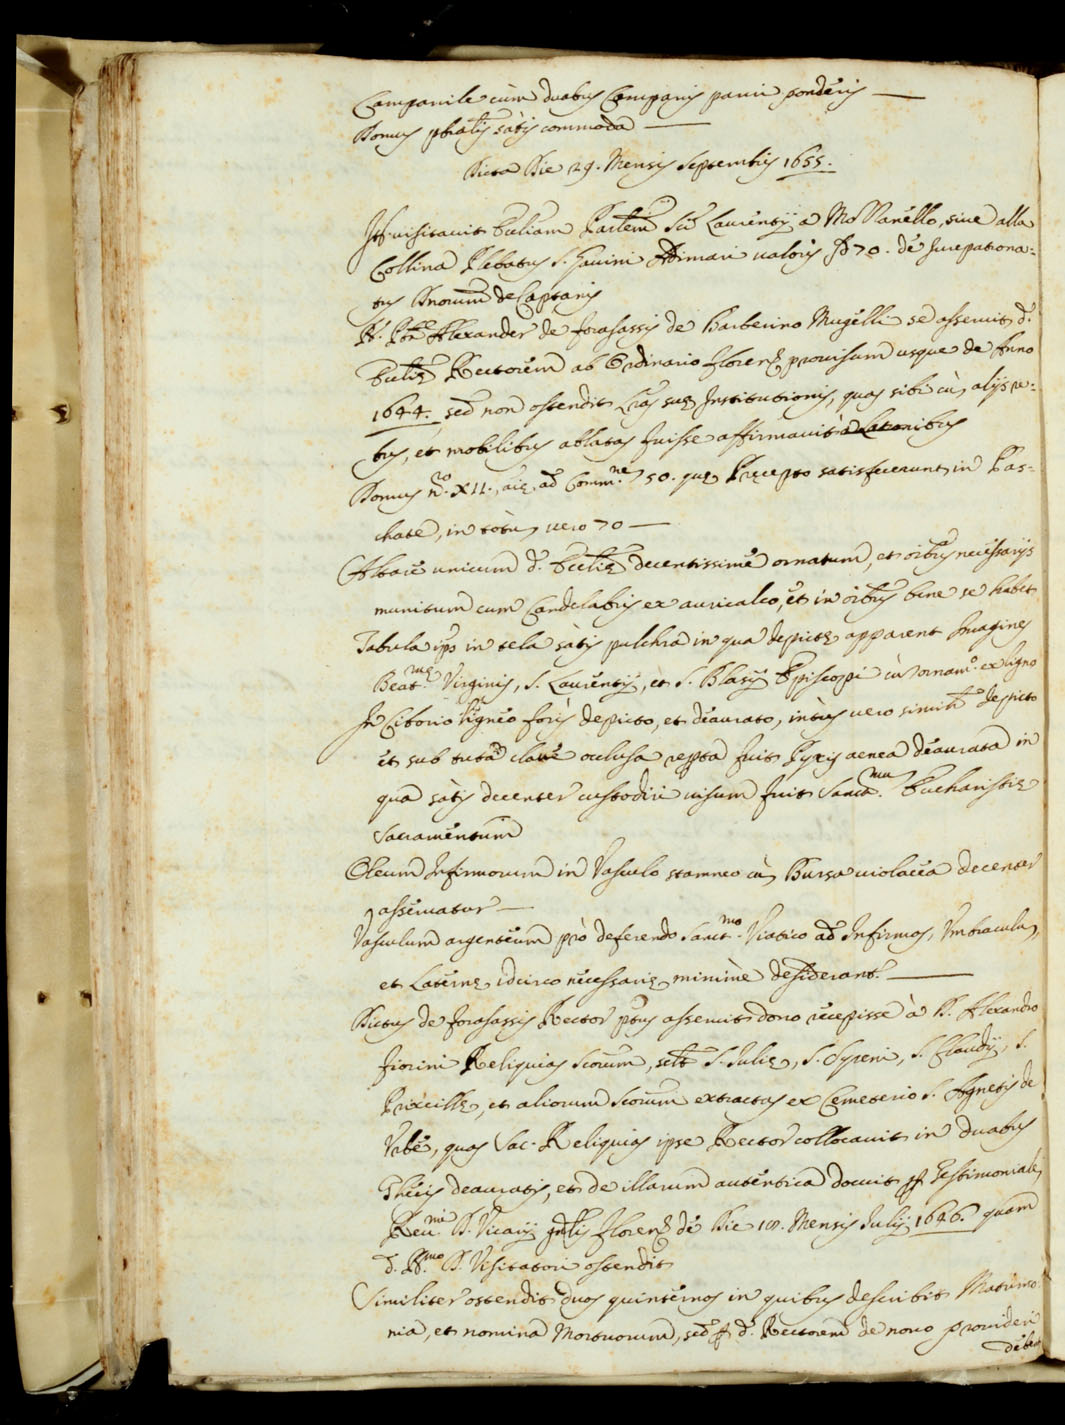 Campanile cùm duabus Campanis parui ponderis —
Domus pbralis satis commoda —
Dicta Die 29. Mensis Septembris 1655.
It. uisitauit Eccliam Parlem Sti Laurentij a Mo Vanello, siue alla
Collina Plebatus S. Gauini Adimari ualoris 70. de Jurepatrona=
tus Dnorum de Captanis
R. Alexander de forasassis de Barberino Mugelli se asseruit d.
Ecclię Rectorem ab Ordinario Floren. prouisum usque de Anno
1644. sed non ostendit Lras suę Institutionis, quas sibi cù alijs re=
bus, et mobilibus ablatas fuisse affirmauit à Latronibus
Domus no. XII., aię ad Comm.ne 50. quę Pręcepto satisfecerunt in Pas=
chate, in totu uero 70 —
Altare unicum d. Ecclię decentissime ornatum, et oibus necessarijs
munitum cum Candelabris ex auricalco, et in oibus bene se habet
Tabula in tela satis pulchra in qua depictę apparent Imagines
Beat.mę Virginis, S. Laurentij, et S. Blasij Episcopi cù ornam.o ex ligno
In Ciborio ligneo foris depicto, et deaurato, intus uero simili depicto
et sub tuta claue oclusa repta fuit Pyxis aenea deaurata in
qua satis decenter custodiri uisum fuit Sanct.mu Eucharistię
Sacramentum
Oleum Infirmorum in Vasculo stamneo cù Bursa uiolacea decenter
asseruatur —
Vasculum argenteum prò deferendo Sanct.mo Viatico ad Infirmos, Vmbracula,
et Laternę idcirco necessarię minimè desiderant. —
Dictus de forasassis Rector ptus asseruit dono recepisse à D. Alexandro
fiorini Reliquias Scorum, sclt S. Julię, S. Cyreni, S. Claudij, S.
Priscillę, et aliorum Scorum extractas ex Cemeterio S. Agnetis de
Vrbe, quas Sac. Reliquias ipse Rector collocauit in duabus
Thecis deauratis, et de illarum autentica docuit p Testimoniales
Reu.mi D. Vicarij gnlis Floren. de Die 18. Mensis Julij 1646. quam
d. R.mo D. Visitatori ostendit
Similiter ostendit duos quinternos in quibus describit Matrimo
nia, et nomina Mortuorum, sed p d. Rectorem de nouo prouideri
debent